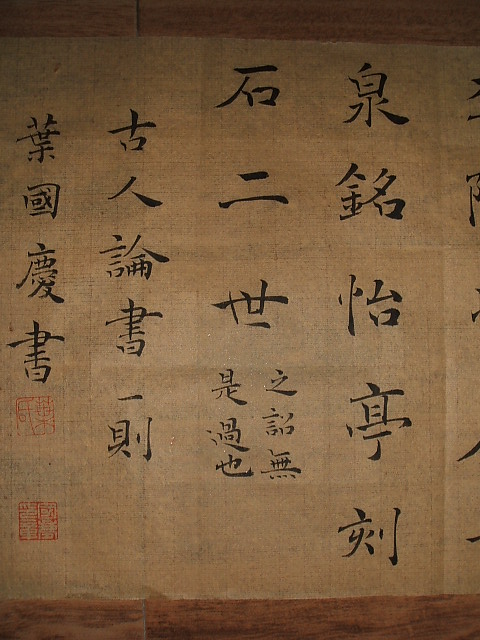 泉銘怡亭刻
石二世
之詔無
是過也
古人論書一則
葉國慶書